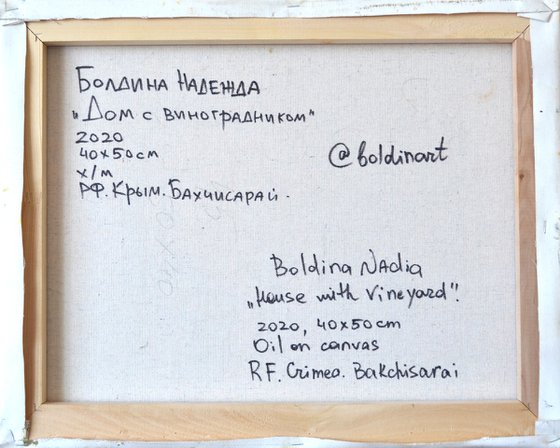 Болдина Надежда
„Дом с виноградником“
2020
40х50см
х/м
РФ. Крым. Бахчисарай.
@boldinart
Boldina Nadia
„House with vineyard“.
2020, 40x50cm
Oil on canvas
RF. Crimea. Bakchisarai